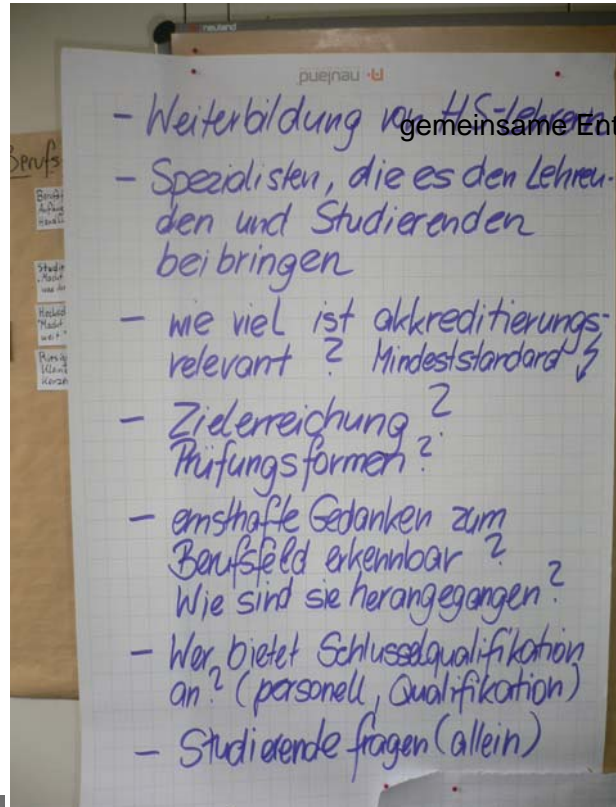 neuland
neuland
- Weiterbildung von HS-Lehrern
gemeinsame Ent
- Spezialisten, die es den Lehren-
den und Studierenden
beibringen
- wie viel ist akkreditierungs-
relevant ? Mindeststandard
- Zielerreichung ?
Prüfungsformen ?
- ernsthafte Gedanken zum
Berufsfeld erkennbar ?
Wie sind sie herangegangen ?
- Wer bietet Schlusselqualifikation
an ? (personell, Qualifikation)
- Studierende fragen (allein)
Berufs